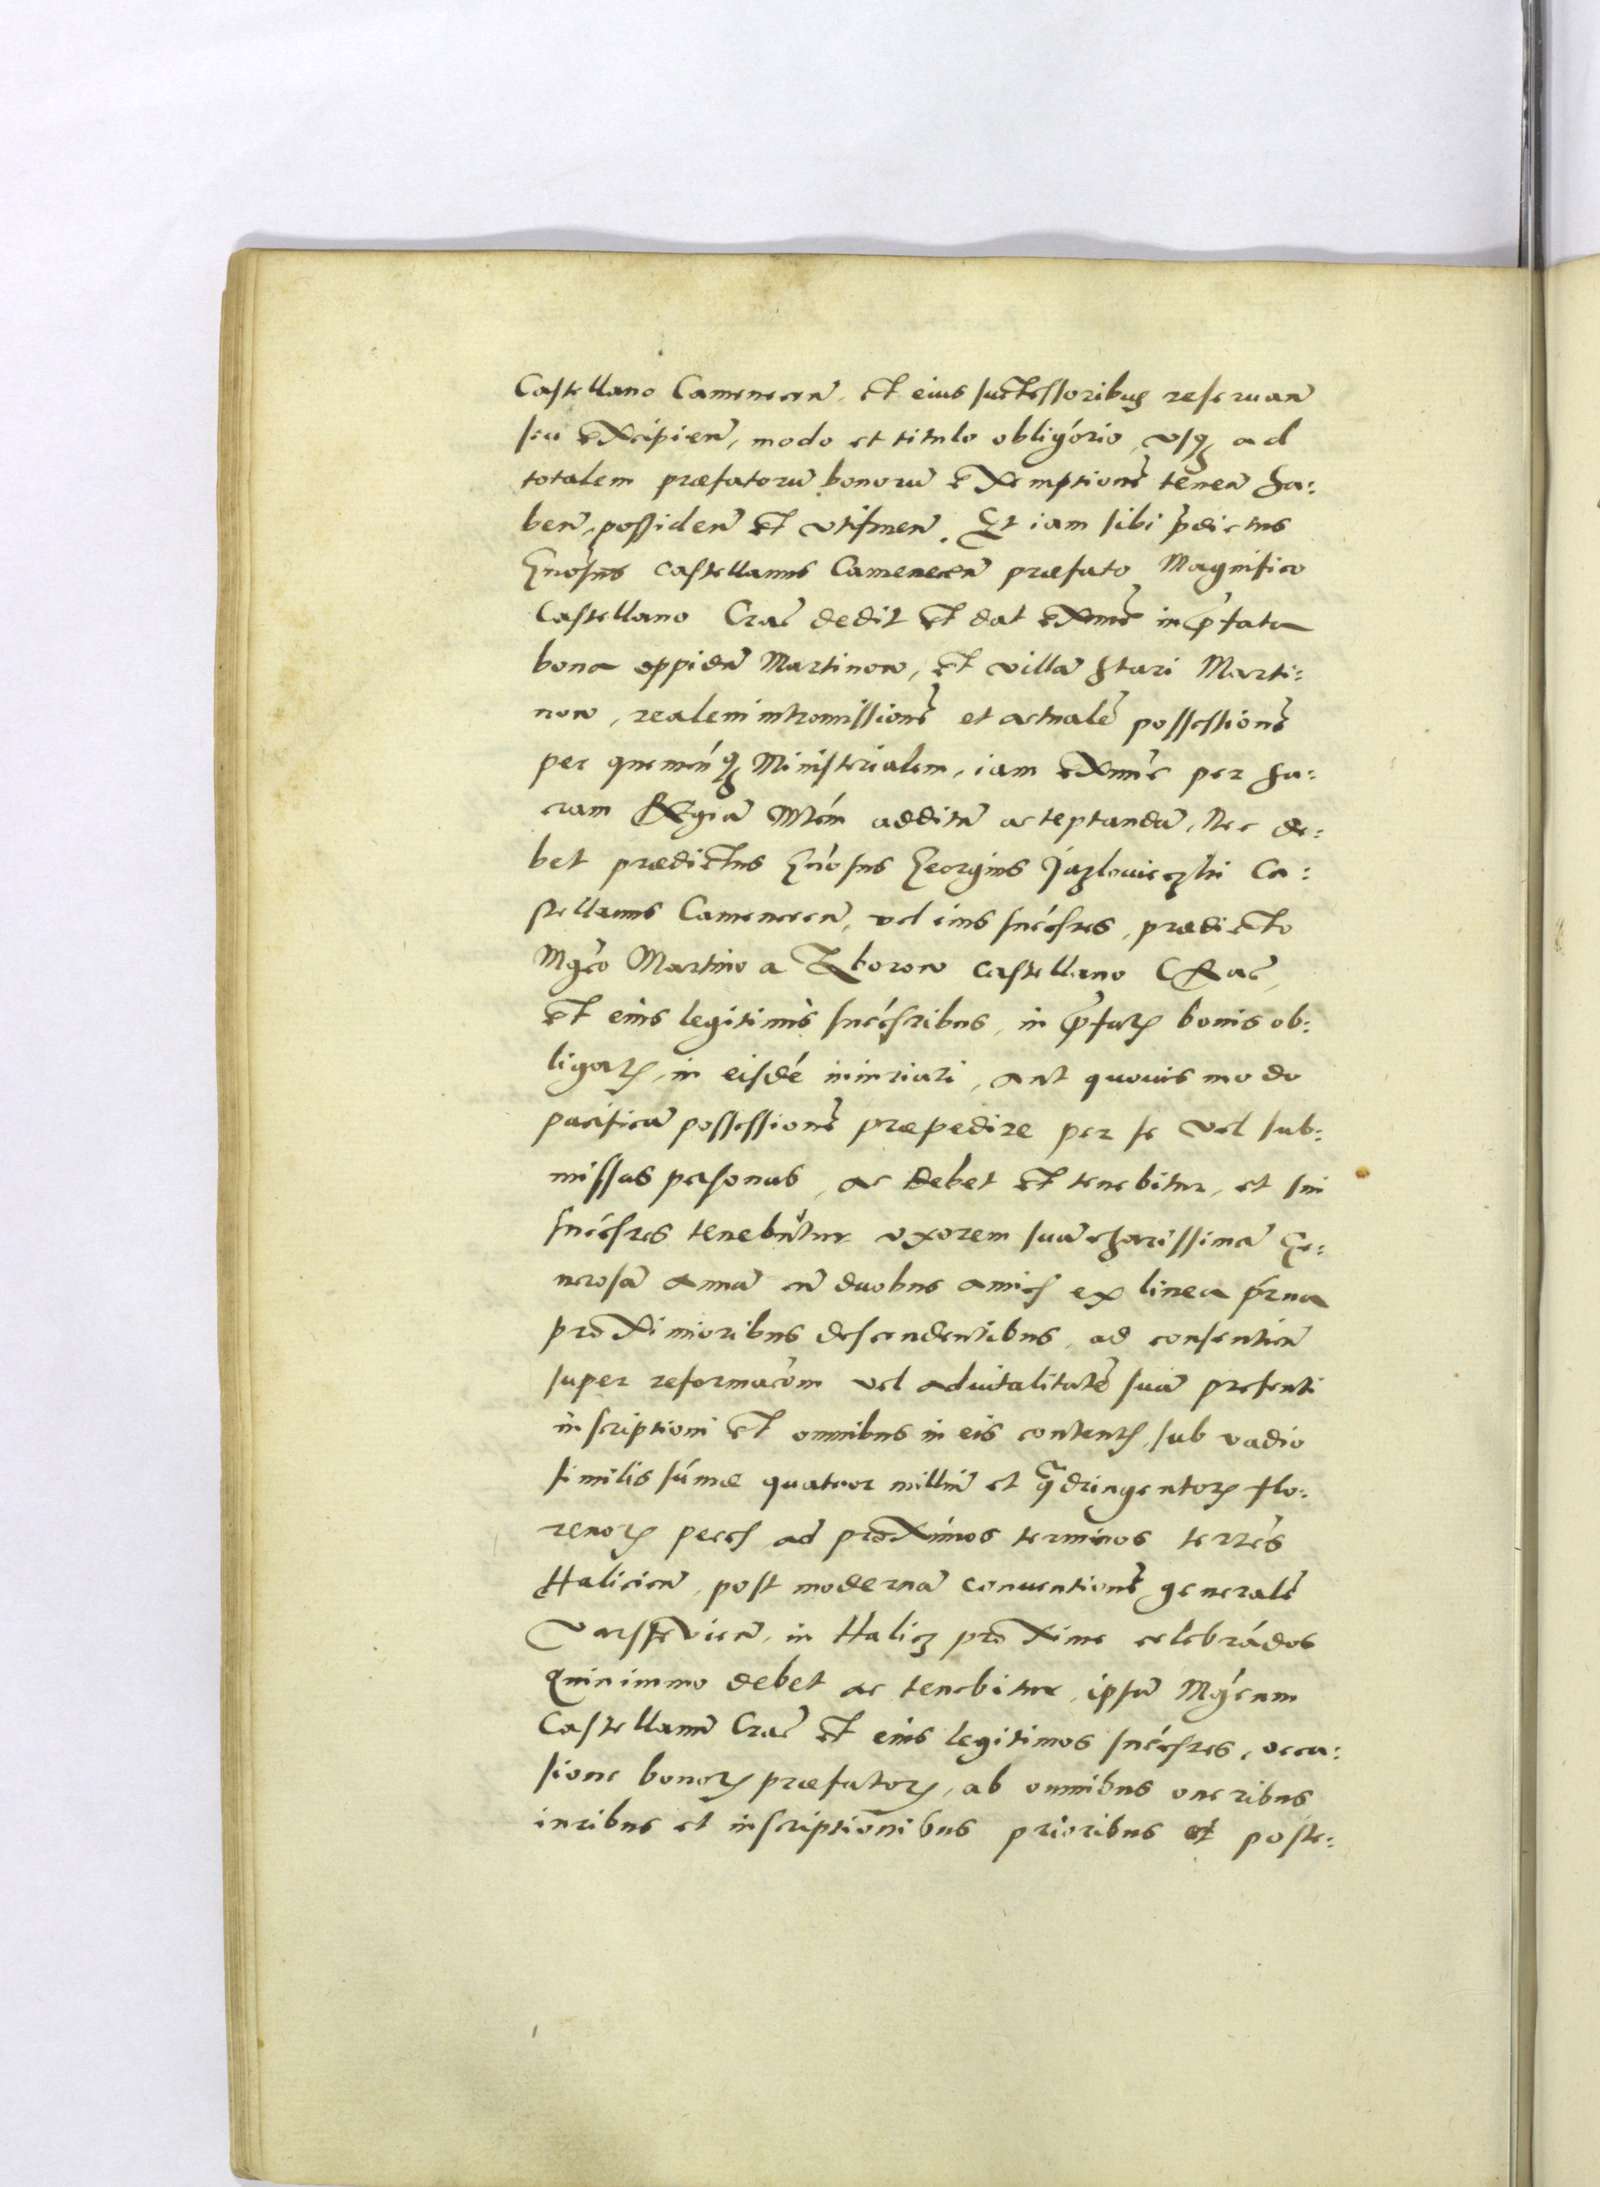 Castellano Camenecen̄. et eius successoribus reseruan̄
seu excipien̄, modo et titulo oblig̃orio, vsq̃ ad
totalem præfatorū bonorū exemptionē tenen̄ ha:
ben̄, possiden̄ et vtifruen̄. Et iam sibi p̄dictus
Gn̄osus Castellanus Camenecen̄ præfato Magnifico
Castellano Crac̄ dedit et dat ex nūc in p̄fata
bona oppidū Martinow, et villā Stari Marti:
now, realem intromissionē et actualē possessionē
per quemcūq̃ Ministerialem, iam ex nūc per Sa:
cram Regiā Mtēm additū acceptandā, Nec de:
bet prædictus Gn̄osus Georgius Jazlowieczki Ca:
stellanus Camenecen̄, vel eius succ̄sres, prædicto
Mg̃co Martino a Zborow Castellano Crac̄,
et eius legitimis succ̄sribus, in p̄fatꝭ bonis ob:
ligatꝭ, in eisdē iniuriari, aut quouis modo
pacificā possessionē præpedire per se vel sub:
missas personas, ac debet et tenebitur, et sui
succ̄sres tenebūtur vxorem suā charissimā Ge:
nerosā Annā cū duobus amicꝭ ex linea p̄rna
proximioribus descendentibus, ad consentien̄
super reformac̄om vel aduitalitatē suā presenti
inscriptioni et omnibus in eis contentꝭ, sub vadio
similis sūmæ quatuor milliū et q̄dringentorꝝ flo:
renorꝝ peccꝭ ad proximos terminos terrēs
Halicien̄, post modernā conuentionē generalē
Varsseuien̄, in Halicz proxime celebrādos
Quinimmo debet ac tenebitur, ipsū Mg̃cum
Castellanū Crac̄ et eius legitimos succ̄sres, occa:
sione bonorꝝ præfatorꝝ, ab omnibus oneribus
iuribus et inscriptionibus prioribus et poste: